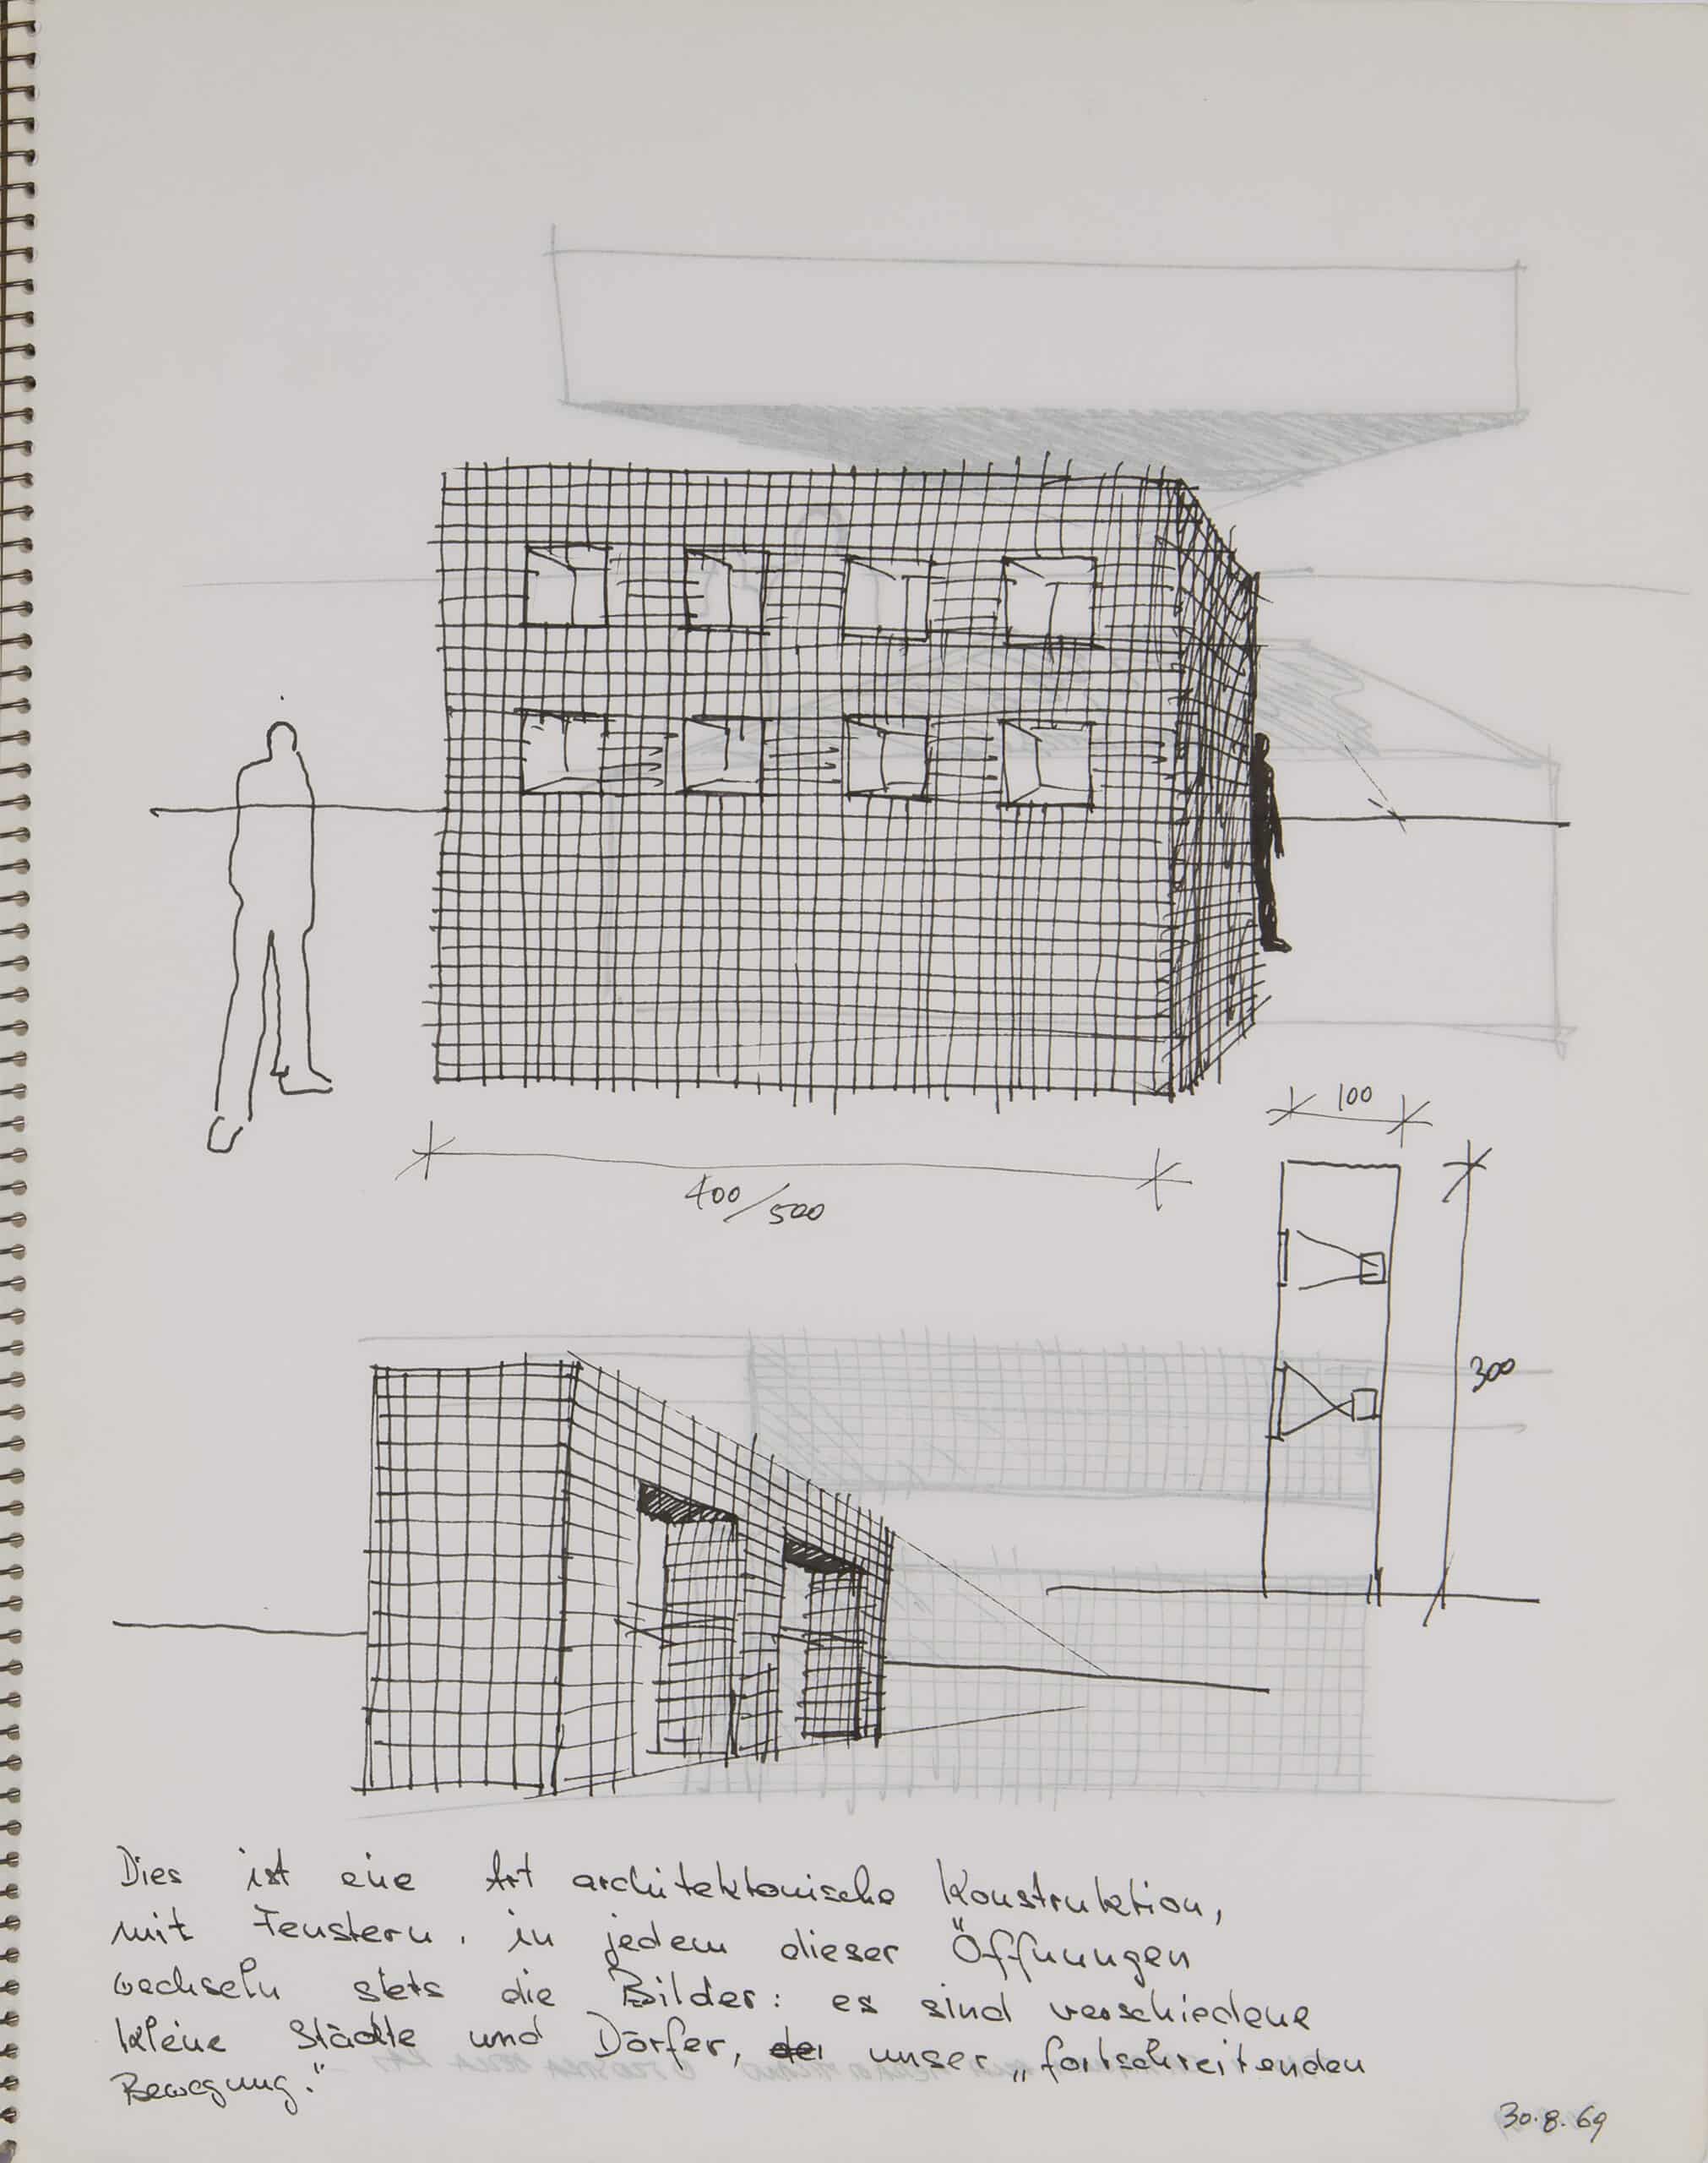 100
400/500
300
Dies ist eine Art architektonische Konstruktion,
mit Fenstern. in jedem dieser Öffnungen
wechseln stets die Bilder: es sind verschiedene
kleine Städte und Dörfer, der unser „fortschreitenden
Bewegung."
30.8.69